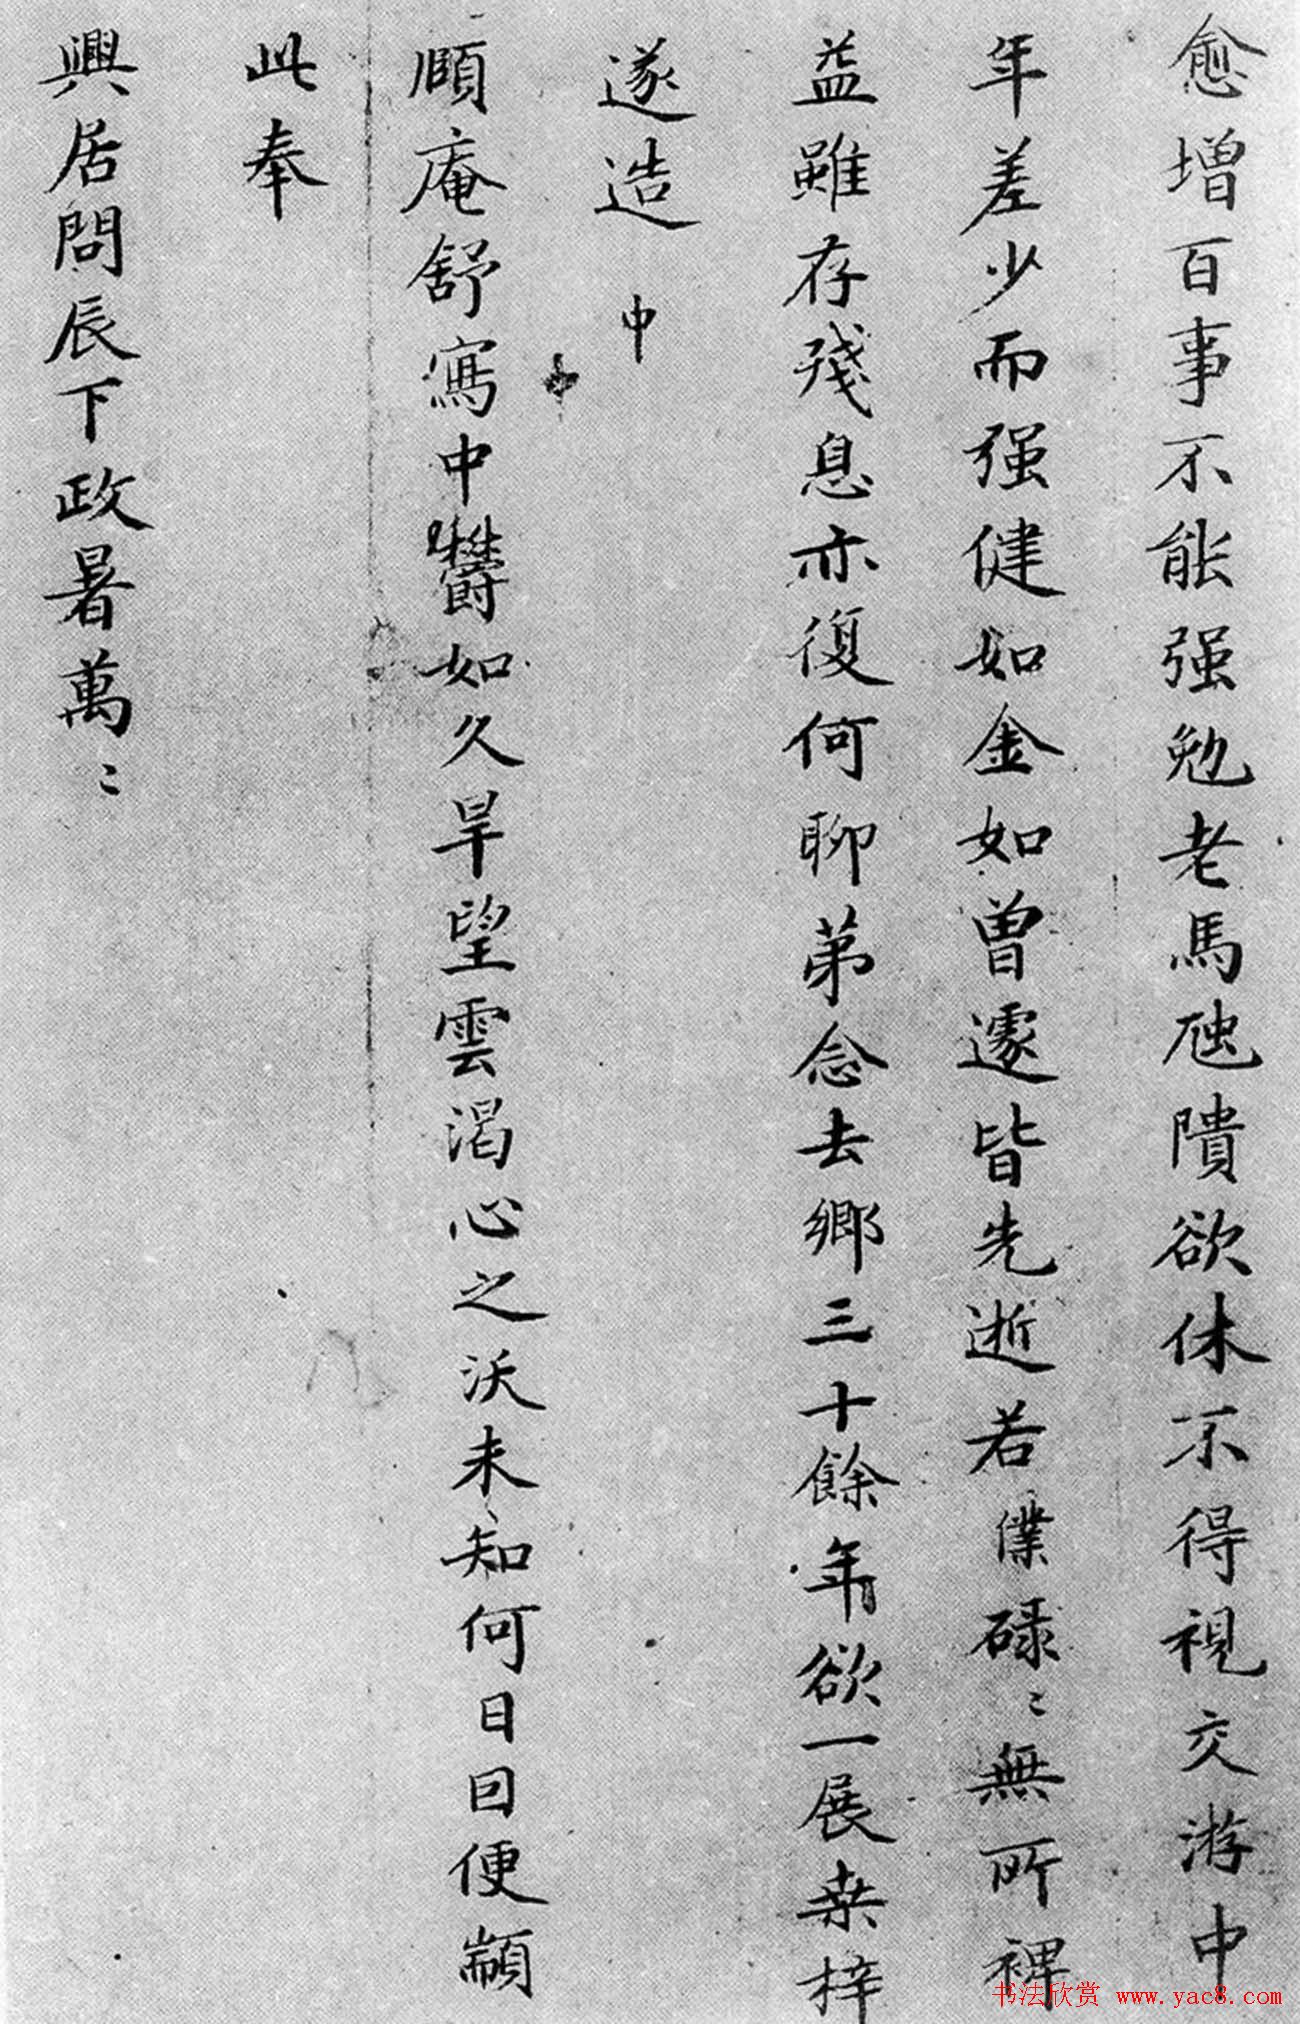 愈增百事不能强勉老馬虺隤欲休不得視交游中
年差少而强健如金如曾遽皆先逝若僕碌〻無所裨
益雖存殘息亦復何聊第念去鄉三十餘年欲一展桑梓
遂造
中
頤庵舒寫中欝如久旱望雲渴心之沃未知何日因便顓
此奉
興居問辰下政暑萬〻
书法欣赏 www.yac8.com